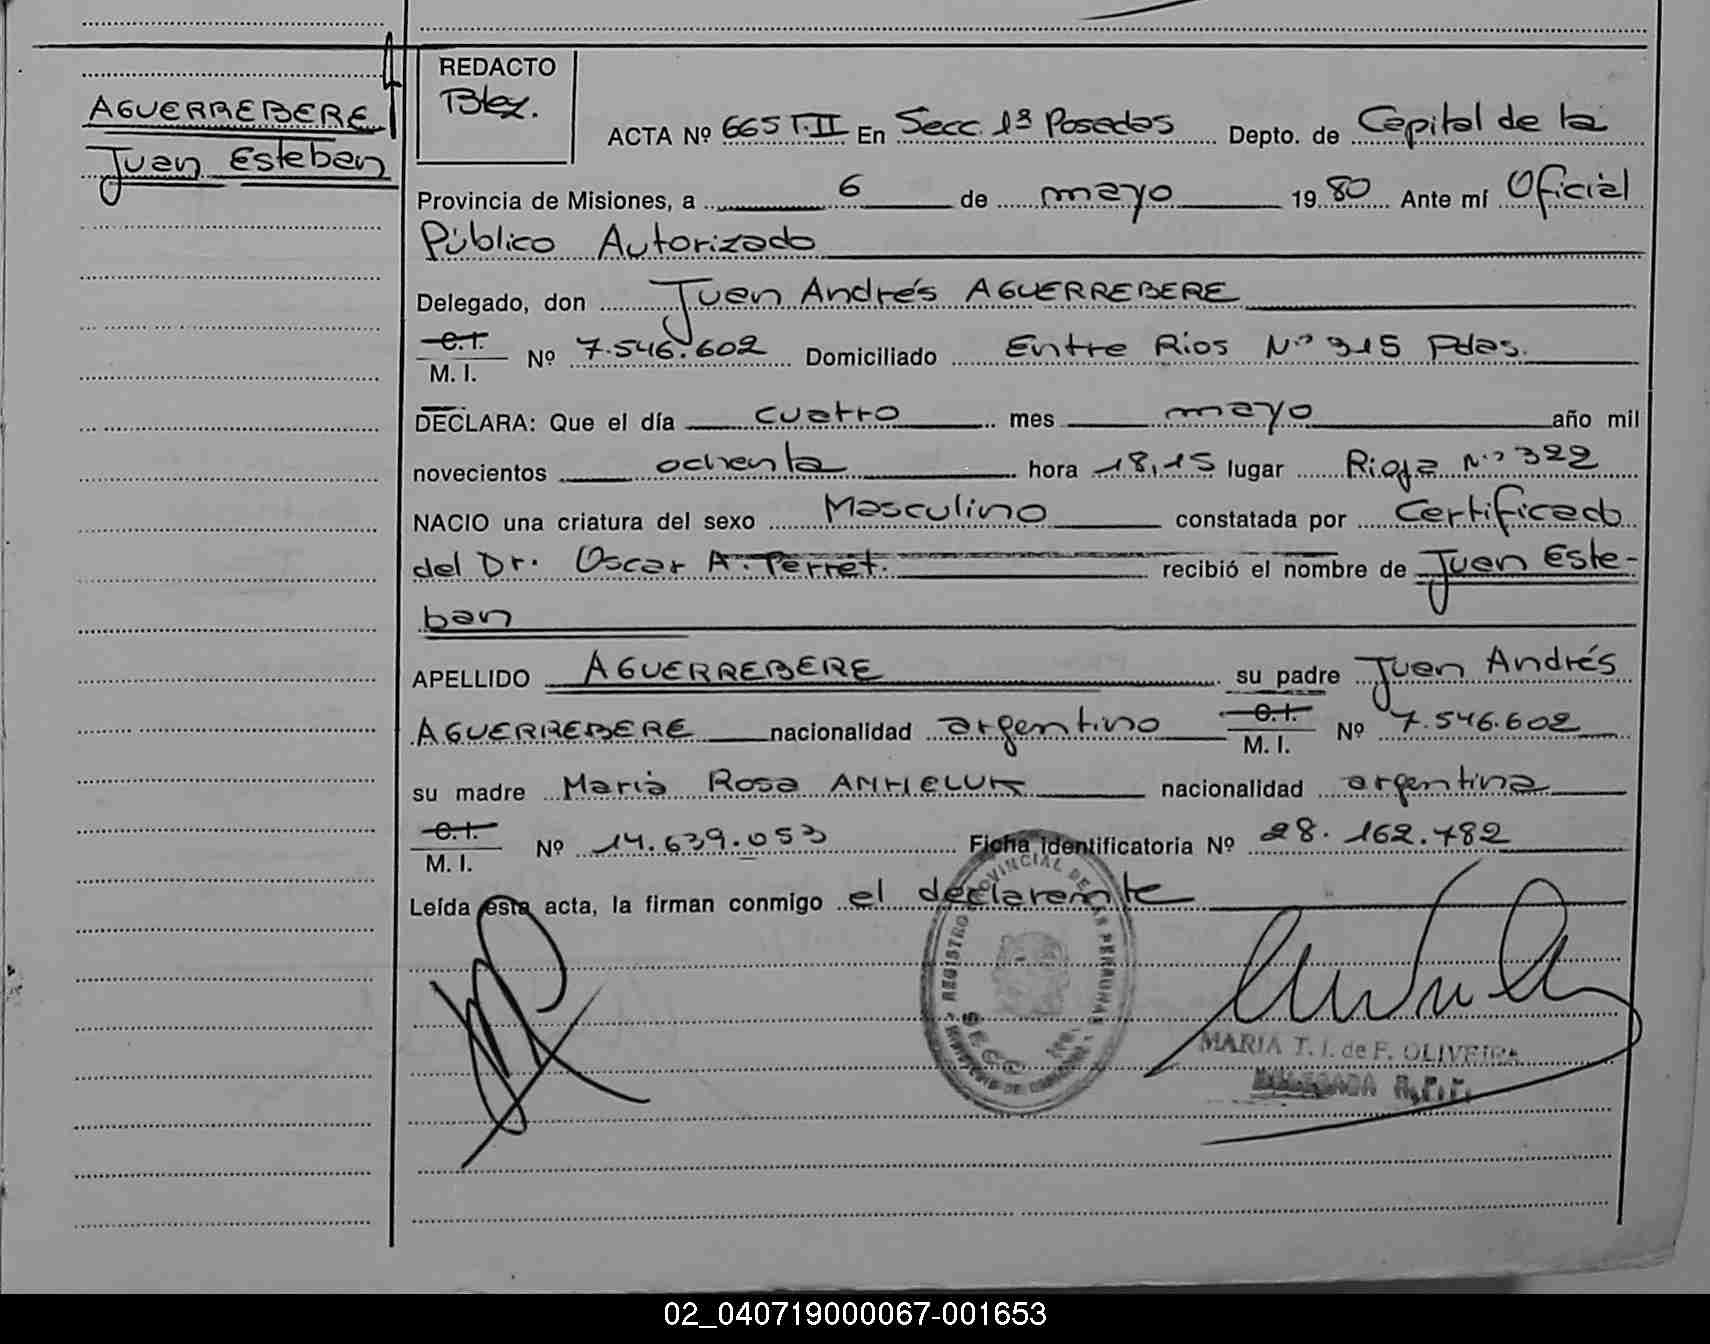 AGUERREBERE
Juan Esteban
REDACTO
Blez.
ACTA Nº 665 T.II En Secc. 1ª Posadas Depto. de Capital de la
Provincia de Misiones, a 6 de mayo 1980 Ante mí Oficial
Público Autorizado
Delegado, don Juan Andrés AGUERREBERE
C.I.
M. I. Nº 7.546.602 Domiciliado Entre Rios Nº 315 Pdas.
DECLARA: Que el día cuatro mes mayo año mil
novecientos ochenta hora 18,15 lugar Rioja Nº 322
NACIO una criatura del sexo Masculino constatada por Certificado
del Dr. Oscar A. Perret. recibió el nombre de Juan Este-
ban
APELLIDO AGUERREBERE su padre Juan Andrés
AGUERREBERE nacionalidad argentino C.I. M. I. Nº 7.546.602
su madre Maria Rosa ANHELUK nacionalidad argentina
C.I.
M. I. Nº 14.639.053 Ficha identificatoria Nº 28.162.782
Leída esta acta, la firman conmigo el declarante
REGISTRO PROVINCIAL DE LAS PERSONAS
SECC. 1ra.
MARIA T. I. de F. OLIVEIRA
DELEGADA
02_040719000067-001653